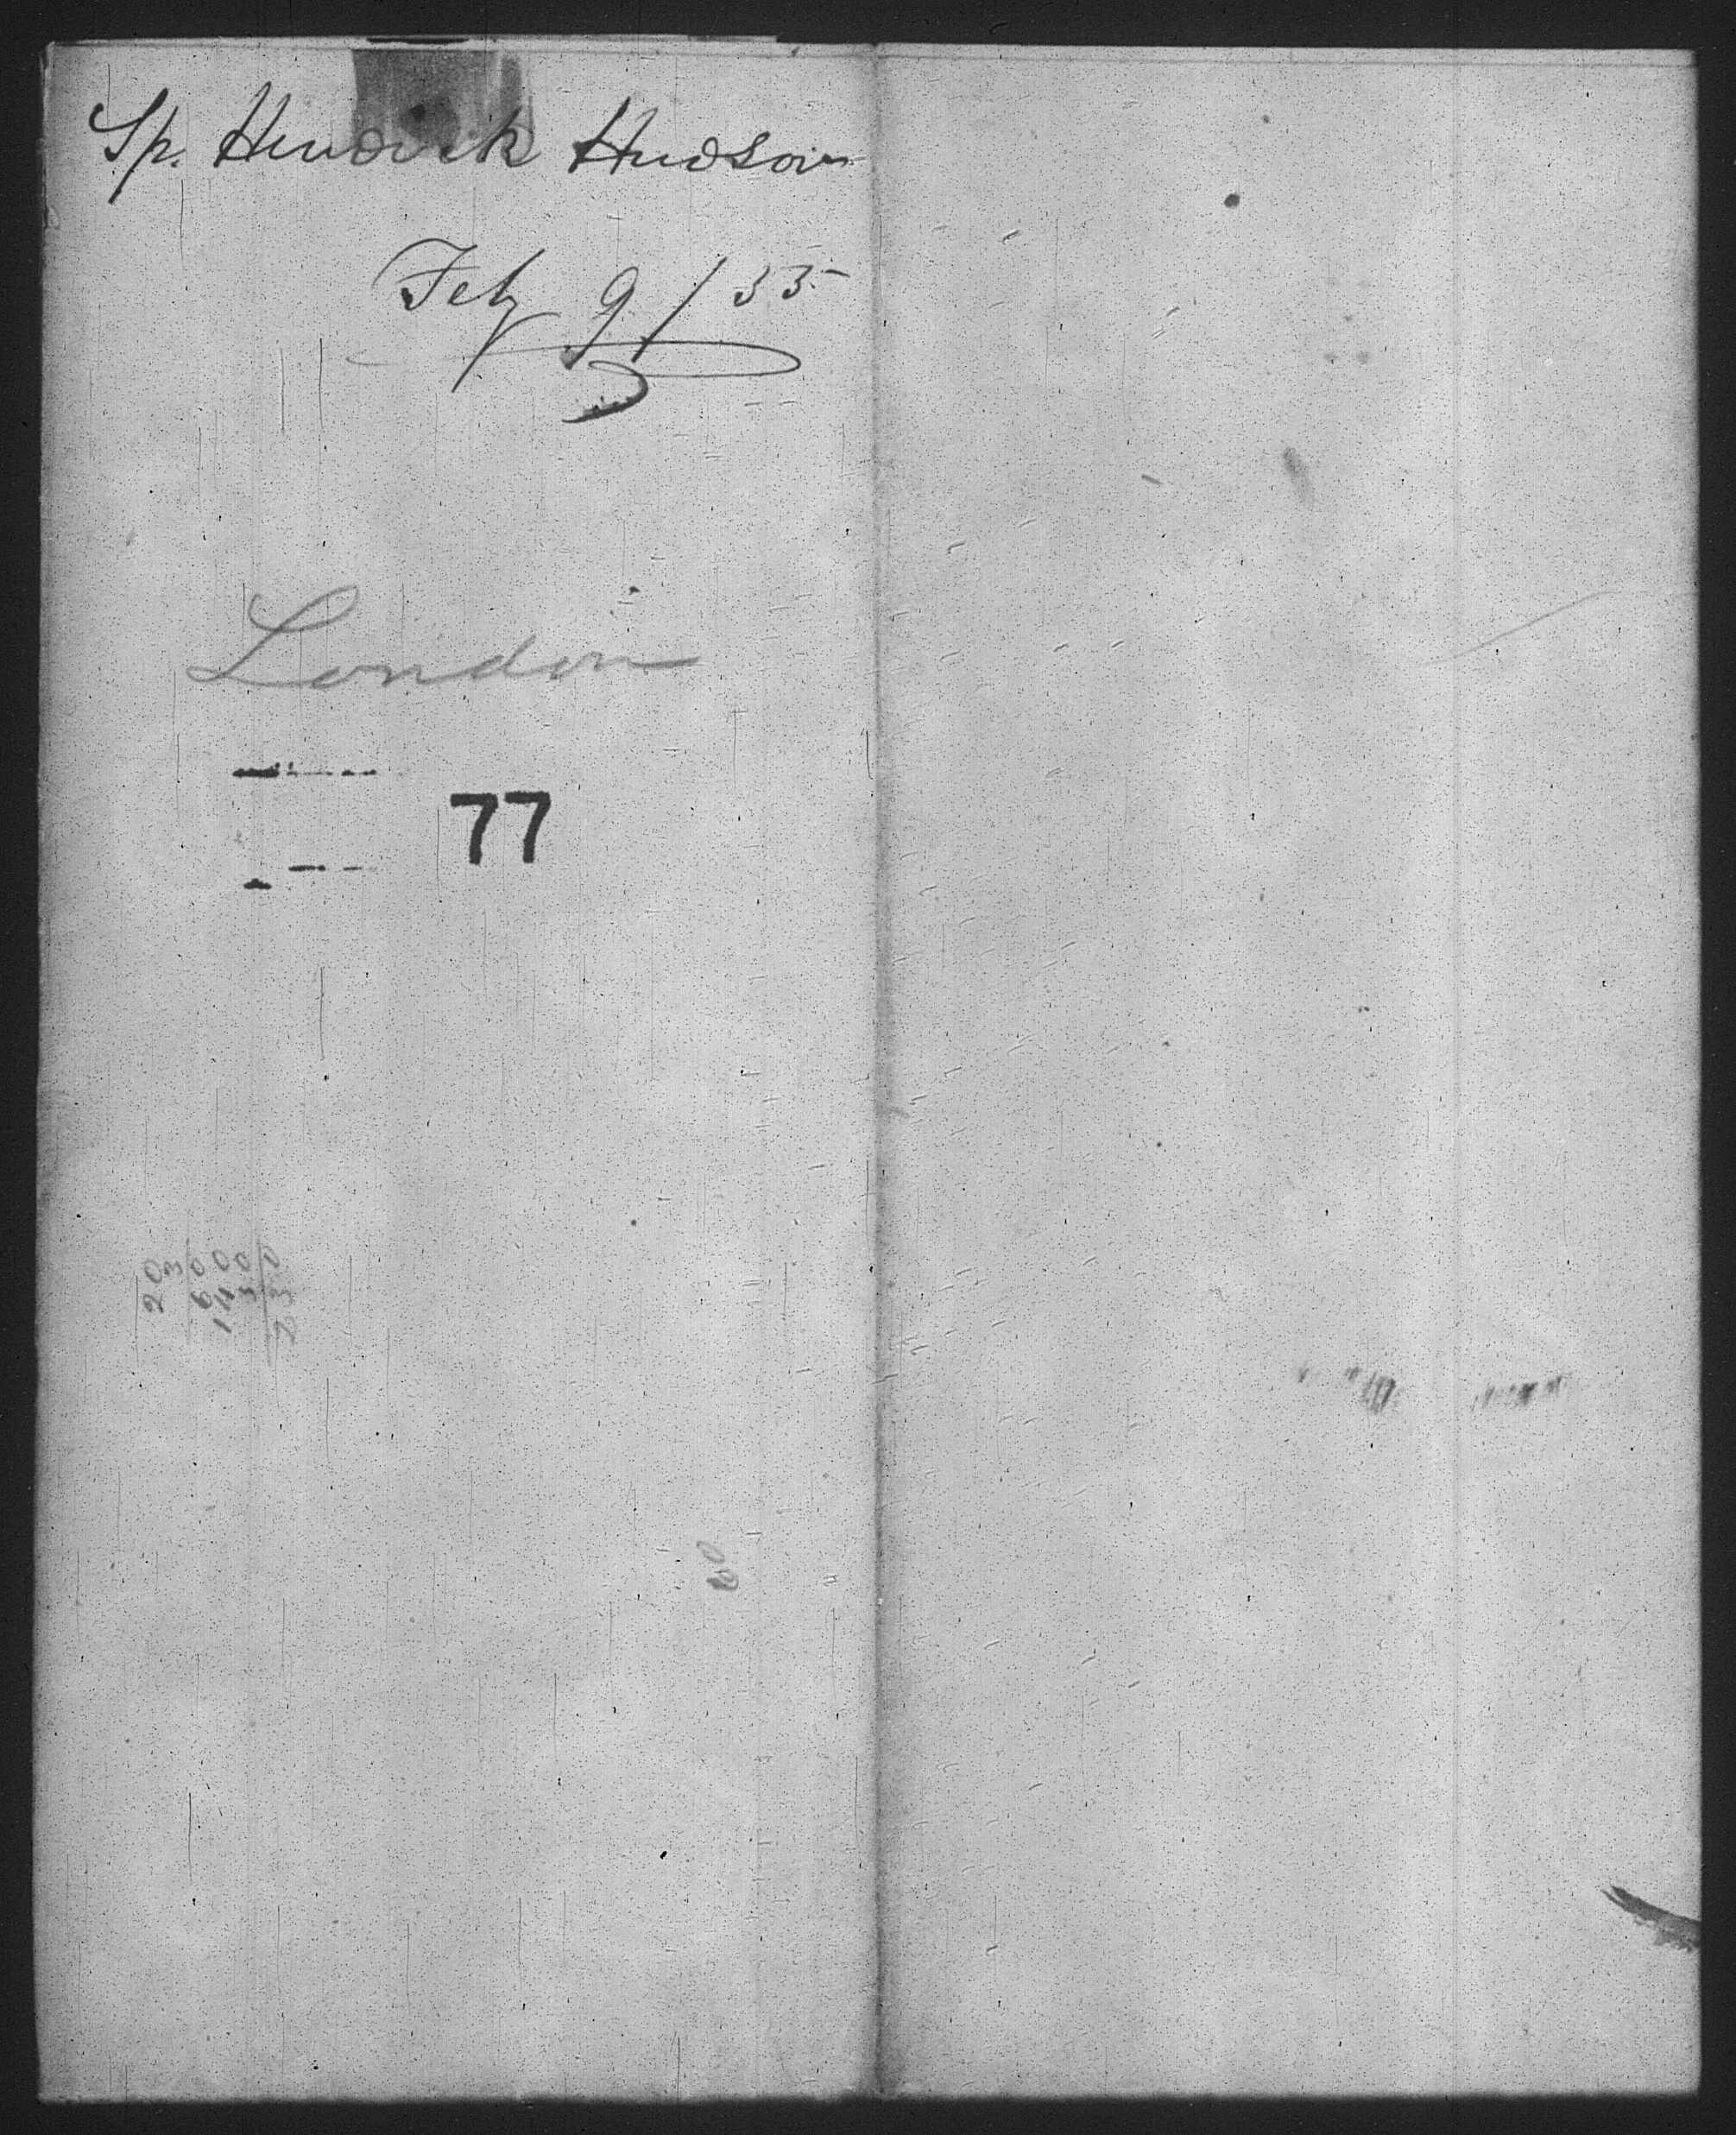 Sp. Hendrick Hudson
Feby 9/55
London
77